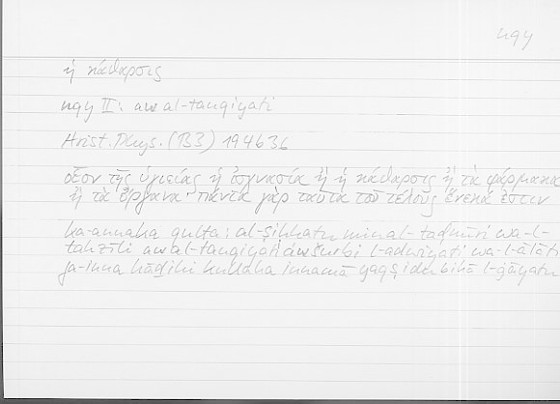 nqy
ἡ κάθαρσις
nqy II: aw al-tanqiyati
Arist. Phys. (B3) 194b36
οἷον τῆς ὑγιείας ἡ ἰσχνασία ἢ ἡ κάθαρσις ἢ τὰ φάρμακα
ἢ τὰ ὄργανα· πάντα γὰρ ταῦτα τοῦ τέλους ἕνεκά ἐστιν
ka-annaka qulta: al-ṣiḥḥatu mina l-taḍmīri wa-l-
tahzīli aw al-tanqiyati aw šurbi l-adwiyati wa-l-ālāti
fa-inna hāḏihi kullaha innamā yaqṣidu bihā l-ġāyatu